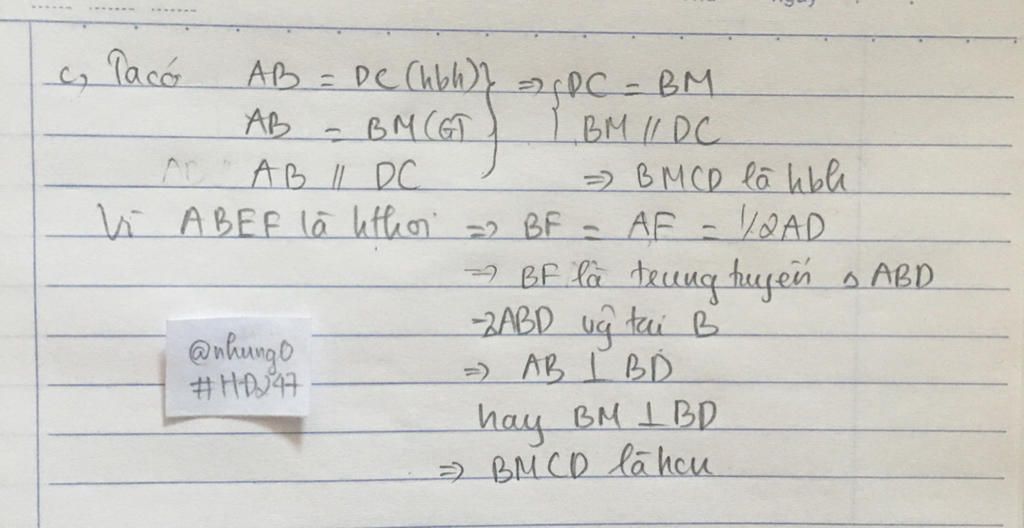 c, Ta có AB = DC (hbh) } => { DC = BM
AB = BM (GT
BM // DC
AB // DC
=> BMCD là hbh
Vì ABEF là hthoi => BF = AF = 1/2AD
=> BF là trung tuyến △ ABD
ABD vg tại B
=> AB ⊥ BD
hay BM ⊥ BD
=> BMCD là hcn
@nhung0